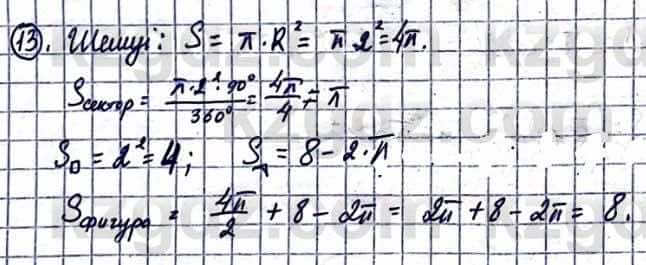 13. Шешуі: S = π·R² = π 2² = 4π.
Sсектор = π·2²·90°/360° = 4π/4 = π
S□ = 2² = 4; S = 8 - 2·π
Sфигура = 4π/2 + 8 - 2π = 2π + 8 - 2π = 8.